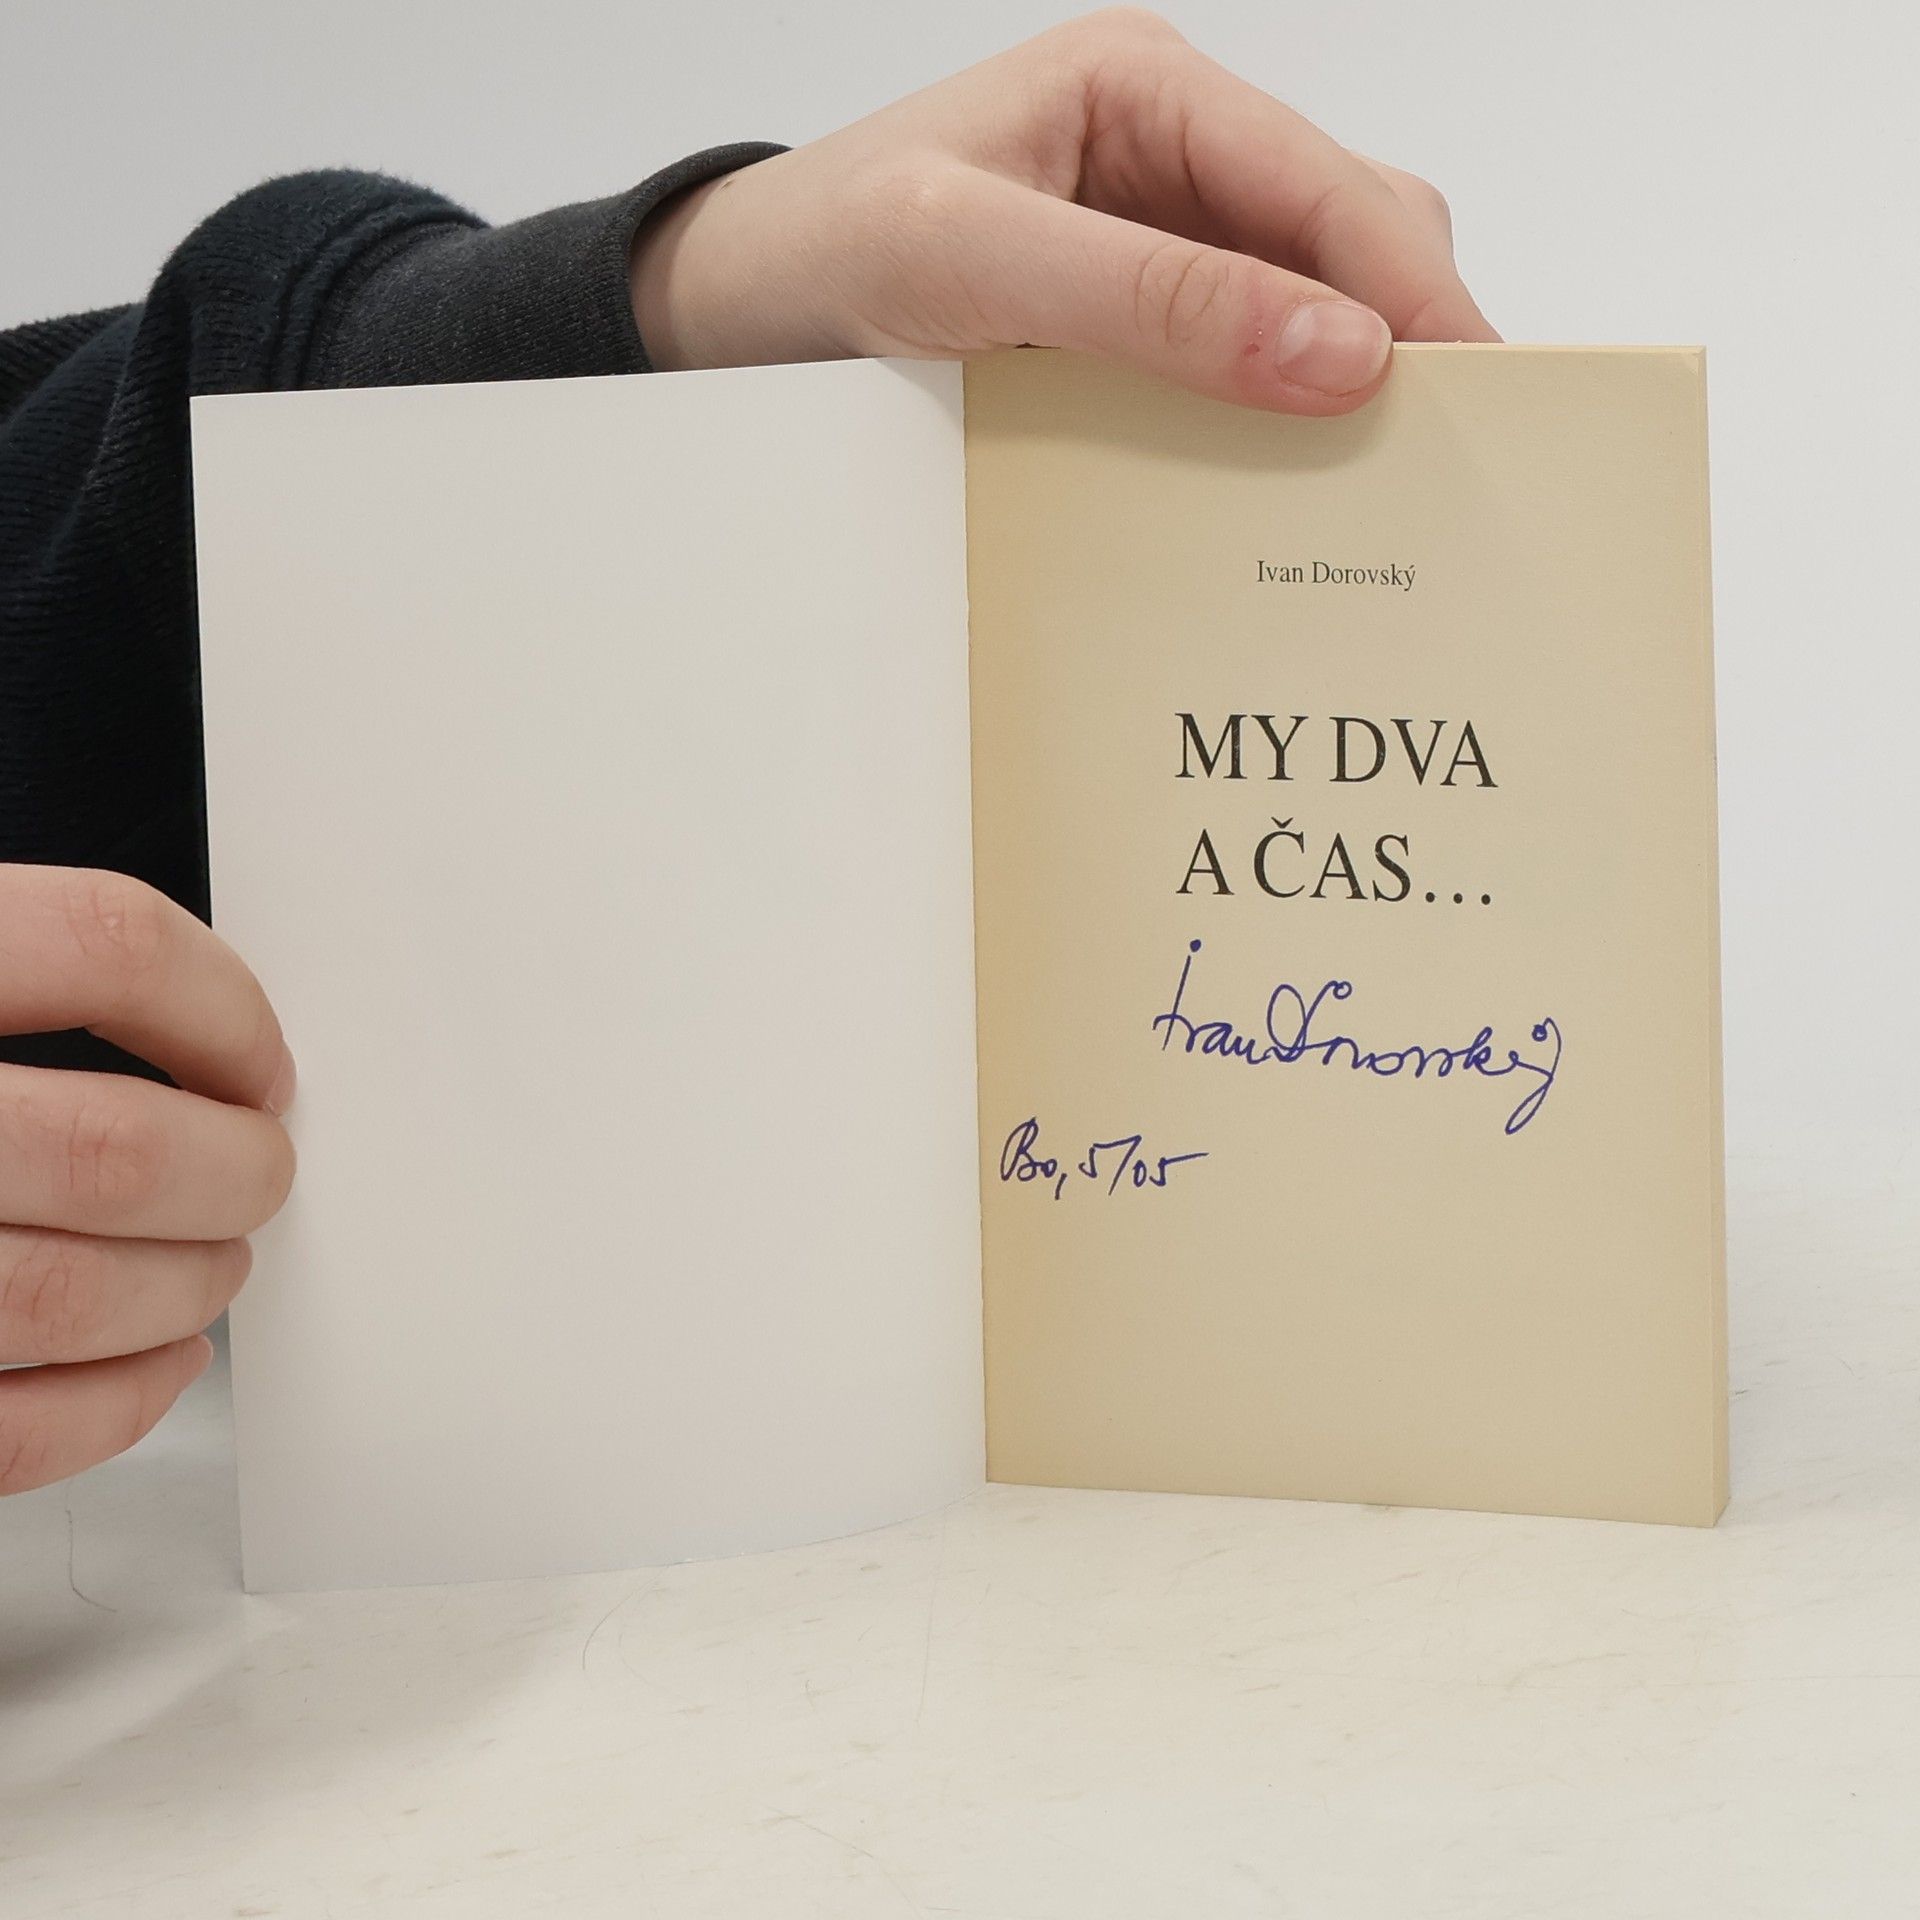 Ivan Dorovský
MY DVA
A ČAS...
Ivan Dorovský
Bo, 5/05